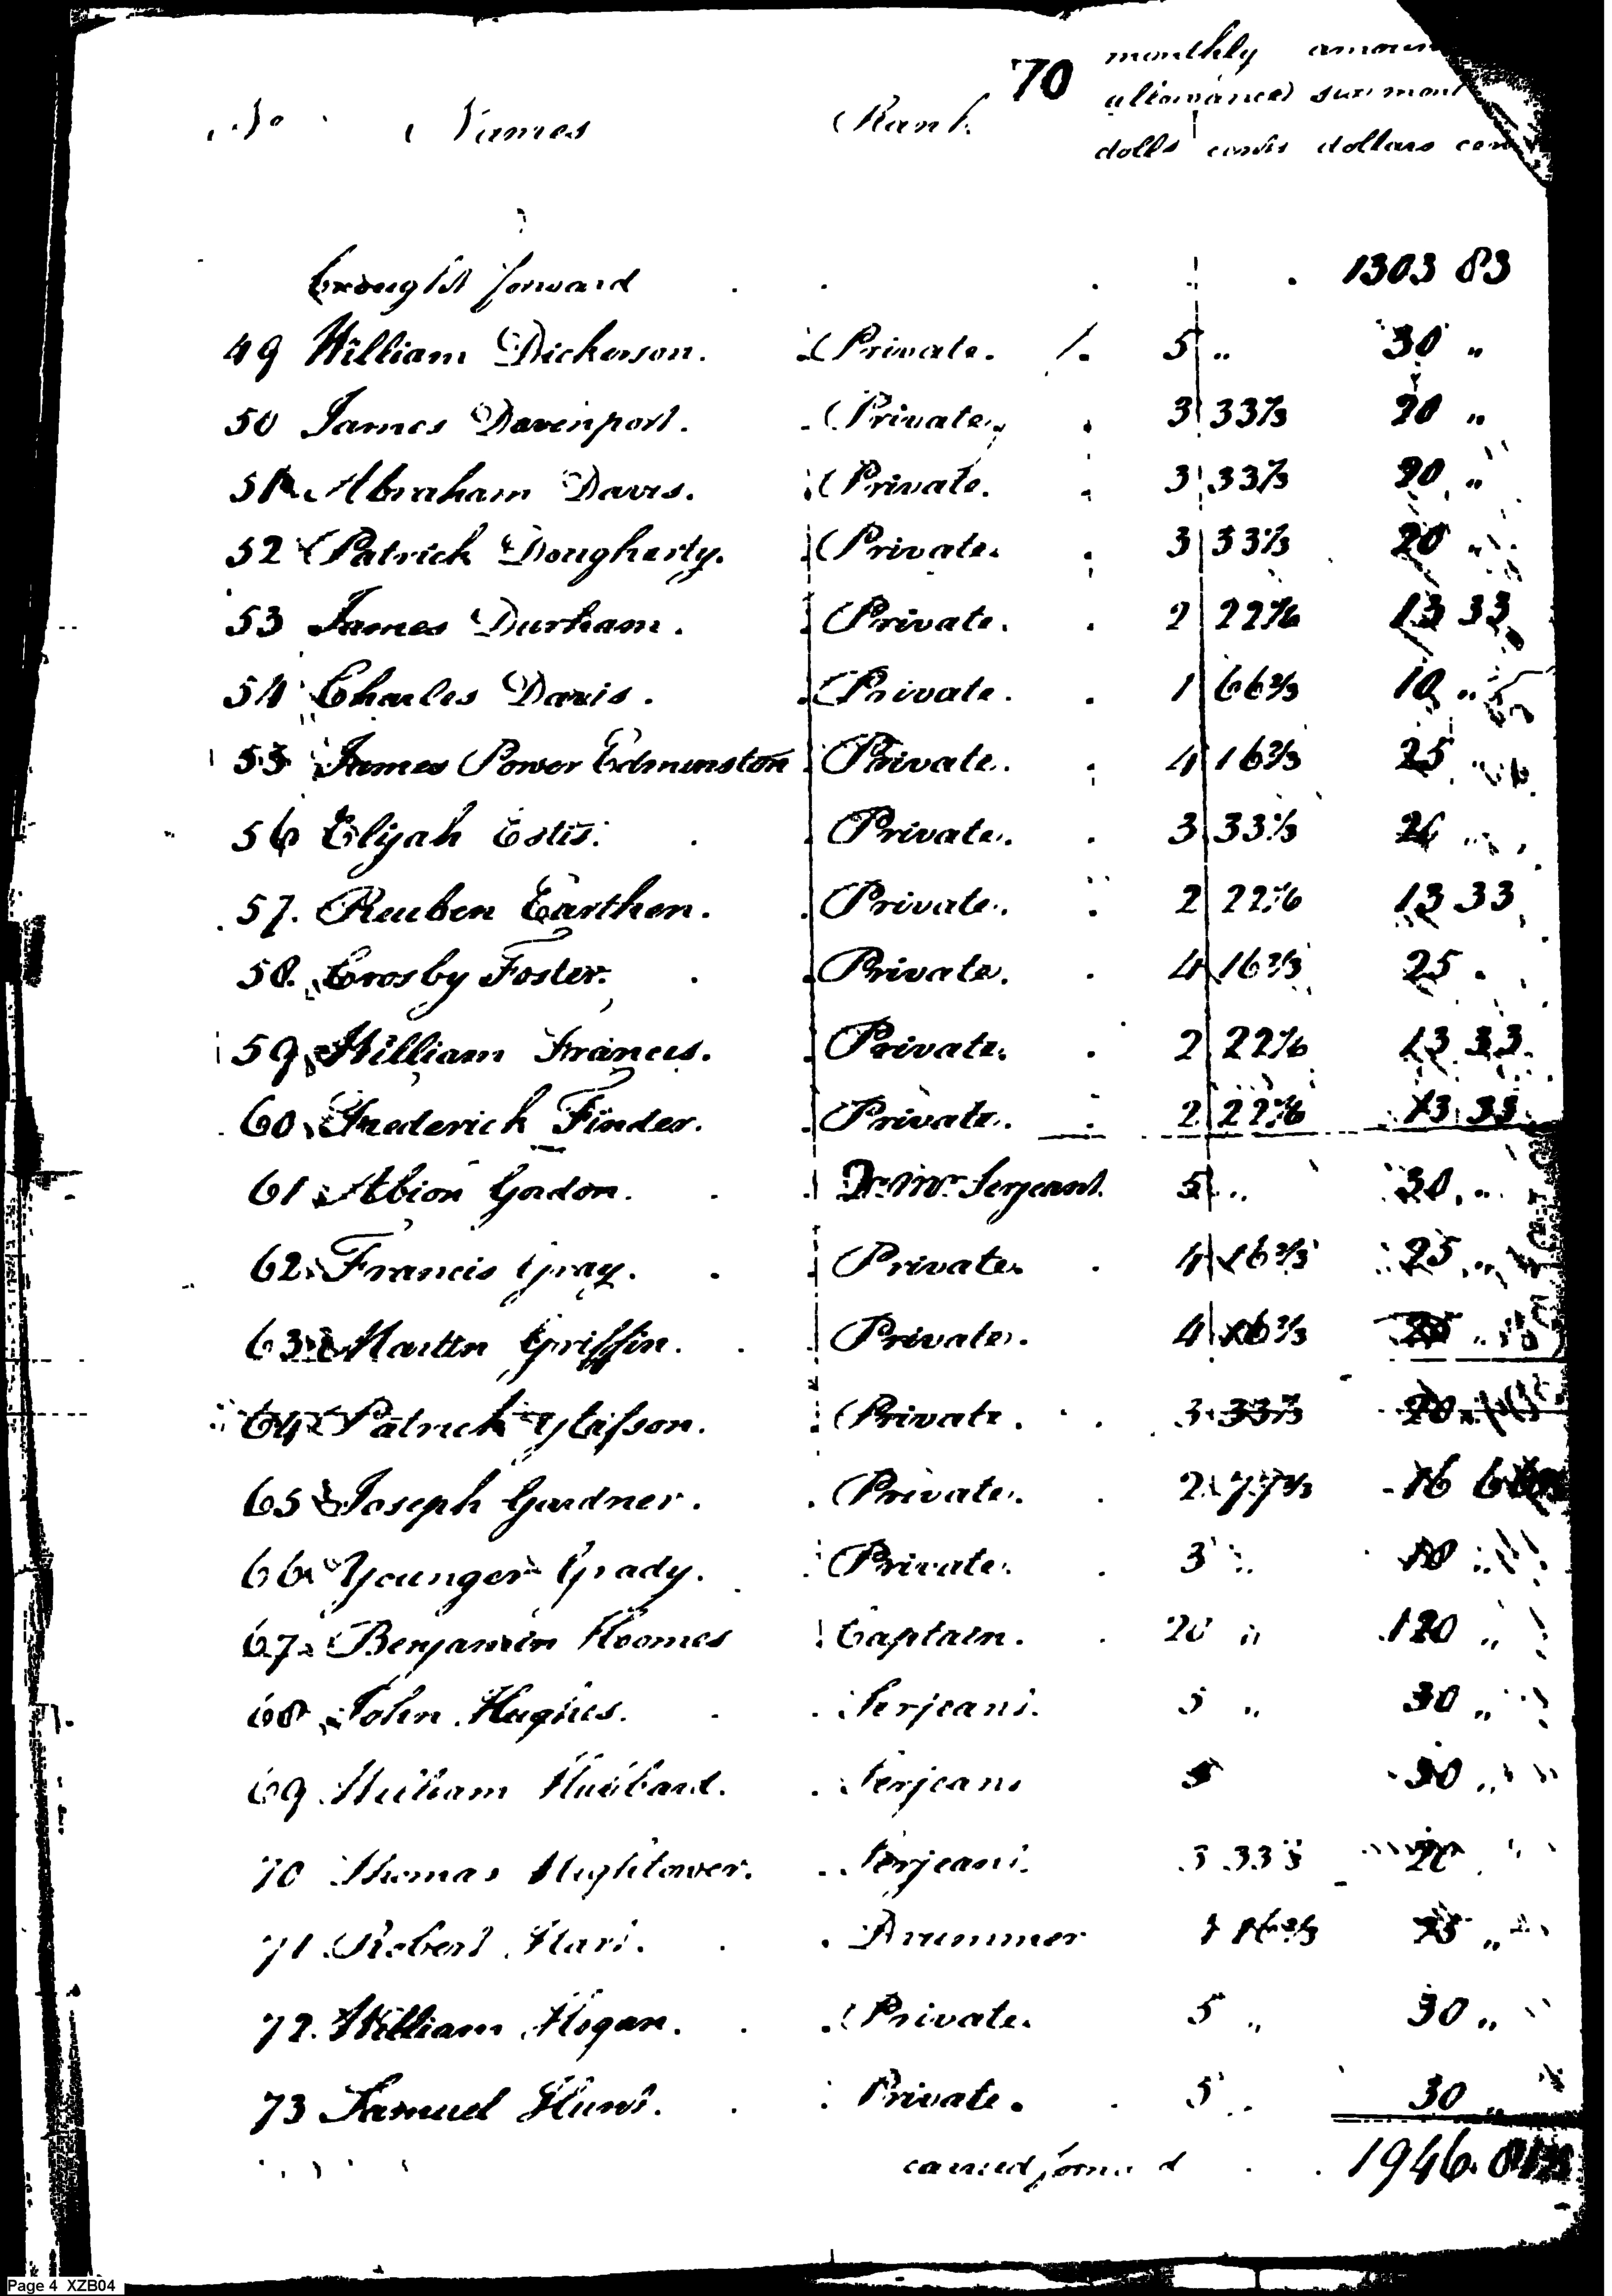 70
monthly amoun
allowance six mont
dolls cents dollars cen
No Names Rank
brought forward 1303 83
49 William Dickerson. Private. 5 „ 30 „
50 James Davenport. Private. 3 33⅓ 20 „
51 Abraham Davis. Private. 3 33⅓ 20 „
52 Patrick Dougherty. Private. 3 33⅓ 20 „
53 James Durham. Private. 2 22 13 33
54 Charles Davis. Private. 1 66⅔ 10 „
55 James Power Edmunston Private. 4 16⅔ 25 „
56 Elijah Estis. Private. 3 33⅓ 20 „
57. Reuben Earthen. Private. 2 22 13 33
58. Crosby Foster. Private. 4 16⅔ 25
59 William Francis. Private. 2 22 13 33
60 Frederick Finder. Private. 2 22 13 33
61 Albion Gordon. Qr. Mr. Serjeant. 5 „ 30 „
62. Francis Gray. Private. 4 16⅔ 25 „
63 Martin Griffin. Private. 4 16⅔ 25 „
64 Patrick Private. 3 33⅓ 20 „
65 Joseph Gardner. Private. 2 77 16 6
66 Younger Grady. Private. 3 „ 18 „
67 Benjamin Hoomes Captain. 20 „ 120 „
68 John Hughes. Serjeant. 5 „ 30 „
69 William Hubbard. Serjeant 5 30 „
70 Thomas Hightower. Serjeant. 3 33⅓ 20 „
71 Robert Hart. Drummer 4 16⅔ 25 „
72. William Hogan. Private. 5 „ 30 „
73 Samuel Hunt. Private. 5 „ 30 „
carried forward 1946.
Page 4 XZB04